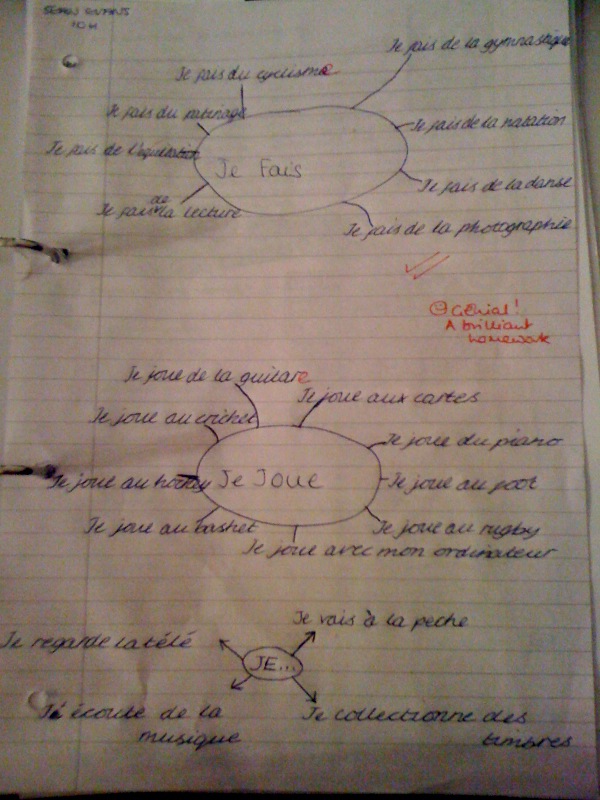 10H
Je fais de la gymnastique
Je fais du cyclisme
Je fais du patinage
Je fais de la natation
Je fais de l'equitation
Je Fais
Je fais de la danse
Je fais de la lecture
Je fais de la photographie
Génial!
A brilliant
homework
Je joue de la guitare
Je joue aux cartes
Je joue au cricket
Je joue du piano
Je joue au hockey
Je Joue
Je joue au foot
Je joue au basket
Je joue au rugby
Je joue avec mon ordinateur
Je vais à la peche
Je regarde la télé
JE...
J'écoute de la
musique
Je collectionne des
timbres